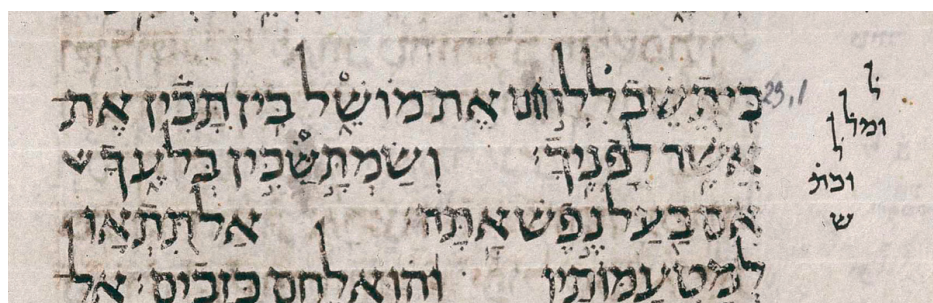 כי תשב ללחום את מושל בין תבין את 23,1
אשר לפניך ושמת שכין בלעך
אם בעל נפש אתה אל תתאו
למטעמותיו והוא לחם כזבים אל
ל
ל
ובת
ש